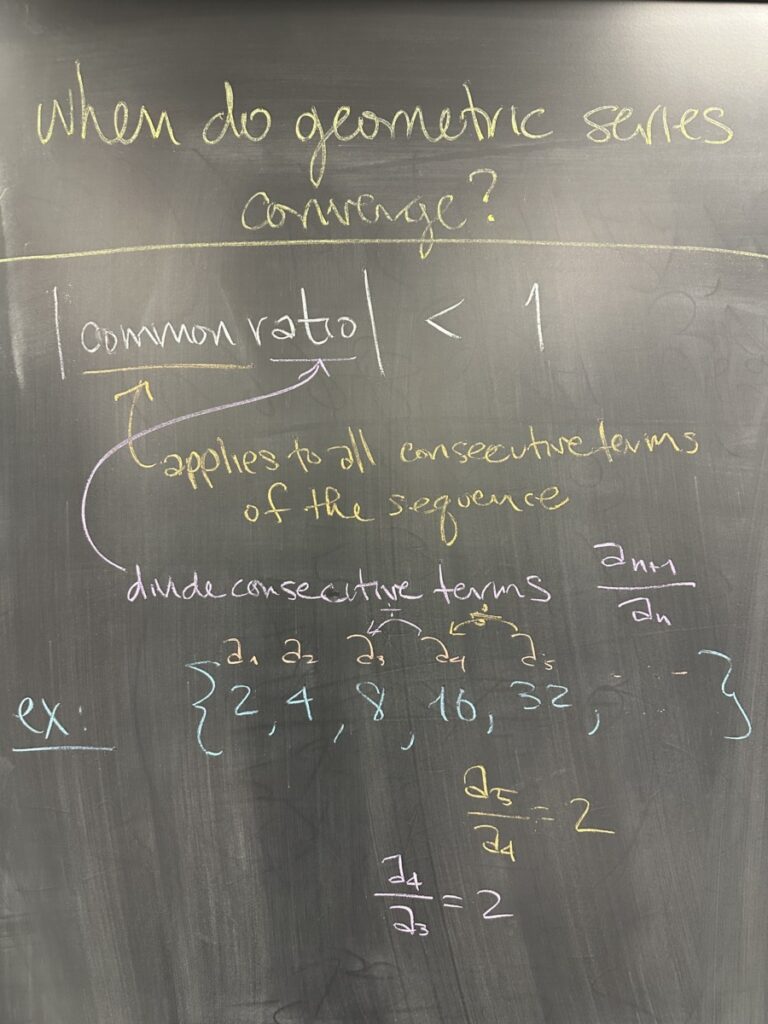 when do geometric series
converge?
|common ratio| < 1
applies to all consecutive terms
of the sequence
divide consecutive terms a_{n+1}/a_n
÷ ÷
a₁ a₂ a₃ a₄ a₅
ex: {2, 4, 8, 16, 32, ...}
a₅/a₄ = 2
a₄/a₃ = 2